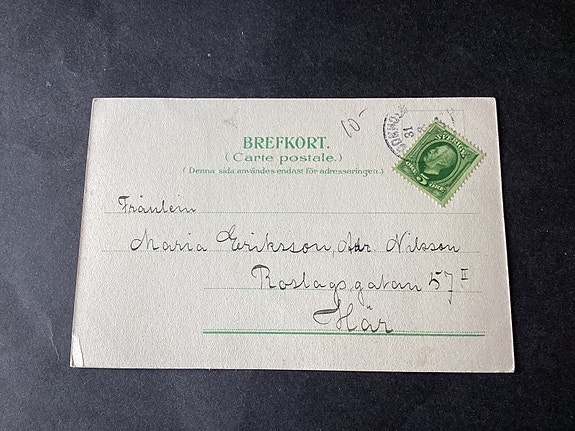 10-
BREFKORT.
(Carte postale.)
(Denna sida användes endast för adresseringen.)
SVERIGE
5 ÖRE
Fräulein
Maria Eriksson, Adr. Nilsson
Roslagsgatan 57 II
Här